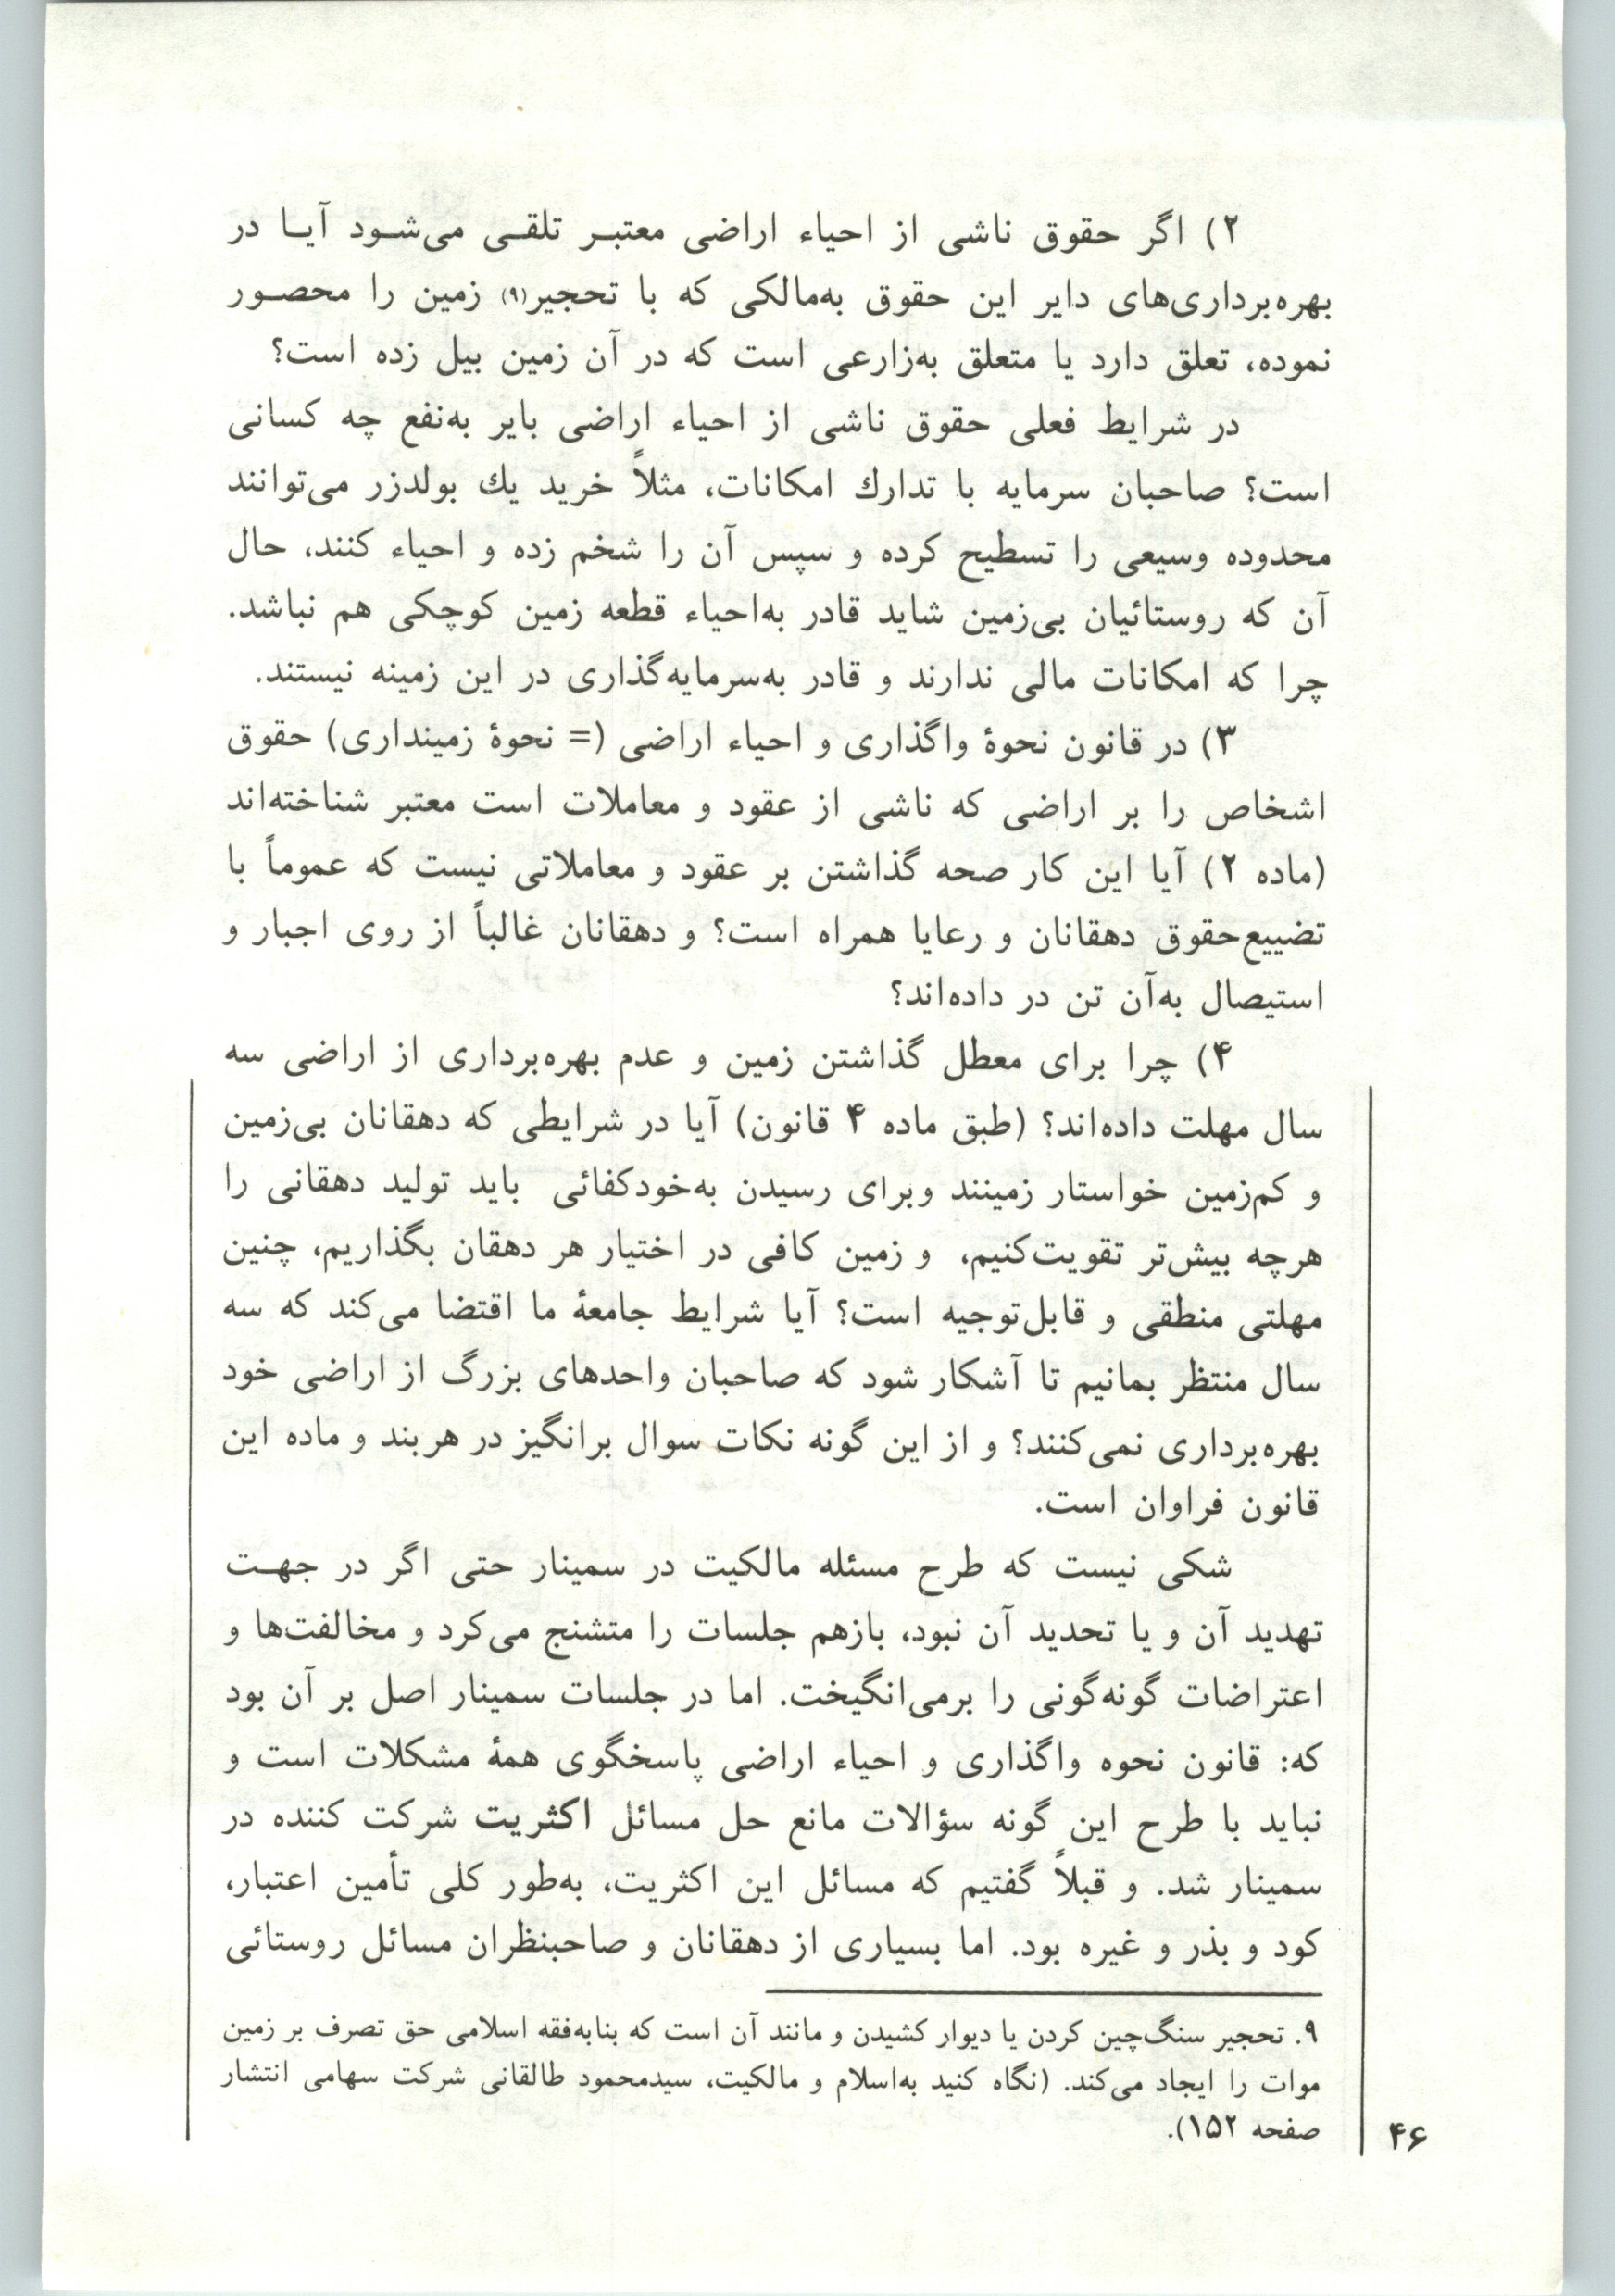 ۲) اگر حقوق ناشی از احیاء اراضی معتبـر تلقـی می‌شـود آیـا در
بهره‌برداری‌های دایر این حقوق به‌مالکی که با تحجیر(۹) زمین را محصـور
نموده، تعلق دارد یا متعلق به‌زارعی است که در آن زمین بیل زده است؟
در شرایط فعلی حقوق ناشی از احیاء اراضی بایر به‌نفع چه کسانی
است؟ صاحبان سرمایه با تدارك امکانات، مثلاً خرید یك بولدزر می‌توانند
محدوده وسیعی را تسطیح کرده و سپس آن را شخم زده و احیاء کنند، حال
آن که روستائیان بی‌زمین شاید قادر به‌احیاء قطعه زمین کوچکی هم نباشد.
چرا که امکانات مالی ندارند و قادر به‌سرمایه‌گذاری در این زمینه نیستند.
۳) در قانون نحوهٔ واگذاری و احیاء اراضی (= نحوهٔ زمینداری) حقوق
اشخاص را بر اراضی که ناشی از عقود و معاملات است معتبر شناخته‌اند
(ماده ۲) آیا این کار صحه گذاشتن بر عقود و معاملاتی نیست که عموماً با
تضییع‌حقوق دهقانان و رعایا همراه است؟ و دهقانان غالباً از روی اجبار و
استیصال به‌آن تن در داده‌اند؟
۴) چرا برای معطل گذاشتن زمین و عدم بهره‌برداری از اراضی سه
سال مهلت داده‌اند؟ (طبق ماده ۴ قانون) آیا در شرایطی که دهقانان بی‌زمین
و کم‌زمین خواستار زمینند وبرای رسیدن به‌خودکفائی باید تولید دهقانی را
هرچه بیش‌تر تقویت‌کنیم، و زمین کافی در اختیار هر دهقان بگذاریم، چنین
مهلتی منطقی و قابل‌توجیه است؟ آیا شرایط جامعهٔ ما اقتضا می‌کند که سه
سال منتظر بمانیم تا آشکار شود که صاحبان واحدهای بزرگ از اراضی خود
بهره‌برداری نمی‌کنند؟ و از این گونه نکات سوال برانگیز در هربند و ماده این
قانون فراوان است.
شکی نیست که طرح مسئله مالکیت در سمینار حتی اگر در جهـت
تهدید آن و یا تحدید آن نبود، بازهم جلسات را متشنج می‌کرد و مخالفت‌ها و
اعتراضات گونه‌گونی را برمی‌انگیخت. اما در جلسات سمینار اصل بر آن بود
که: قانون نحوه واگذاری و احیاء اراضی پاسخگوی همهٔ مشکلات است و
نباید با طرح این گونه سؤالات مانع حل مسائل اکثریت شرکت کننده در
سمینار شد. و قبلاً گفتیم که مسائل این اکثریت، به‌طور کلی تأمین اعتبار،
کود و بذر و غیره بود. اما بسیاری از دهقانان و صاحبنظران مسائل روستائی
۹. تحجیر سنگ‌چین کردن یا دیوار کشیدن و مانند آن است که بنابه‌فقه اسلامی حق تصرف بر زمین
موات را ایجاد می‌کند. (نگاه کنید به‌اسلام و مالکیت، سیدمحمود طالقانی شرکت سهامی انتشار
صفحه ۱۵۲).
۴۶